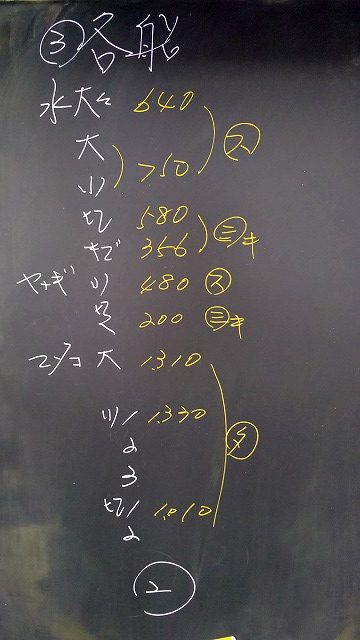 ③各船
水大々 640
大
小 750 ㋜
切
580
キズ 356 ㊂キ
ヤナギ 小 480 ㋜
足 200 ㊂キ
マダコ 大 1,310
小1 1,330
2
3 ㋟
切1 1,010
2
②